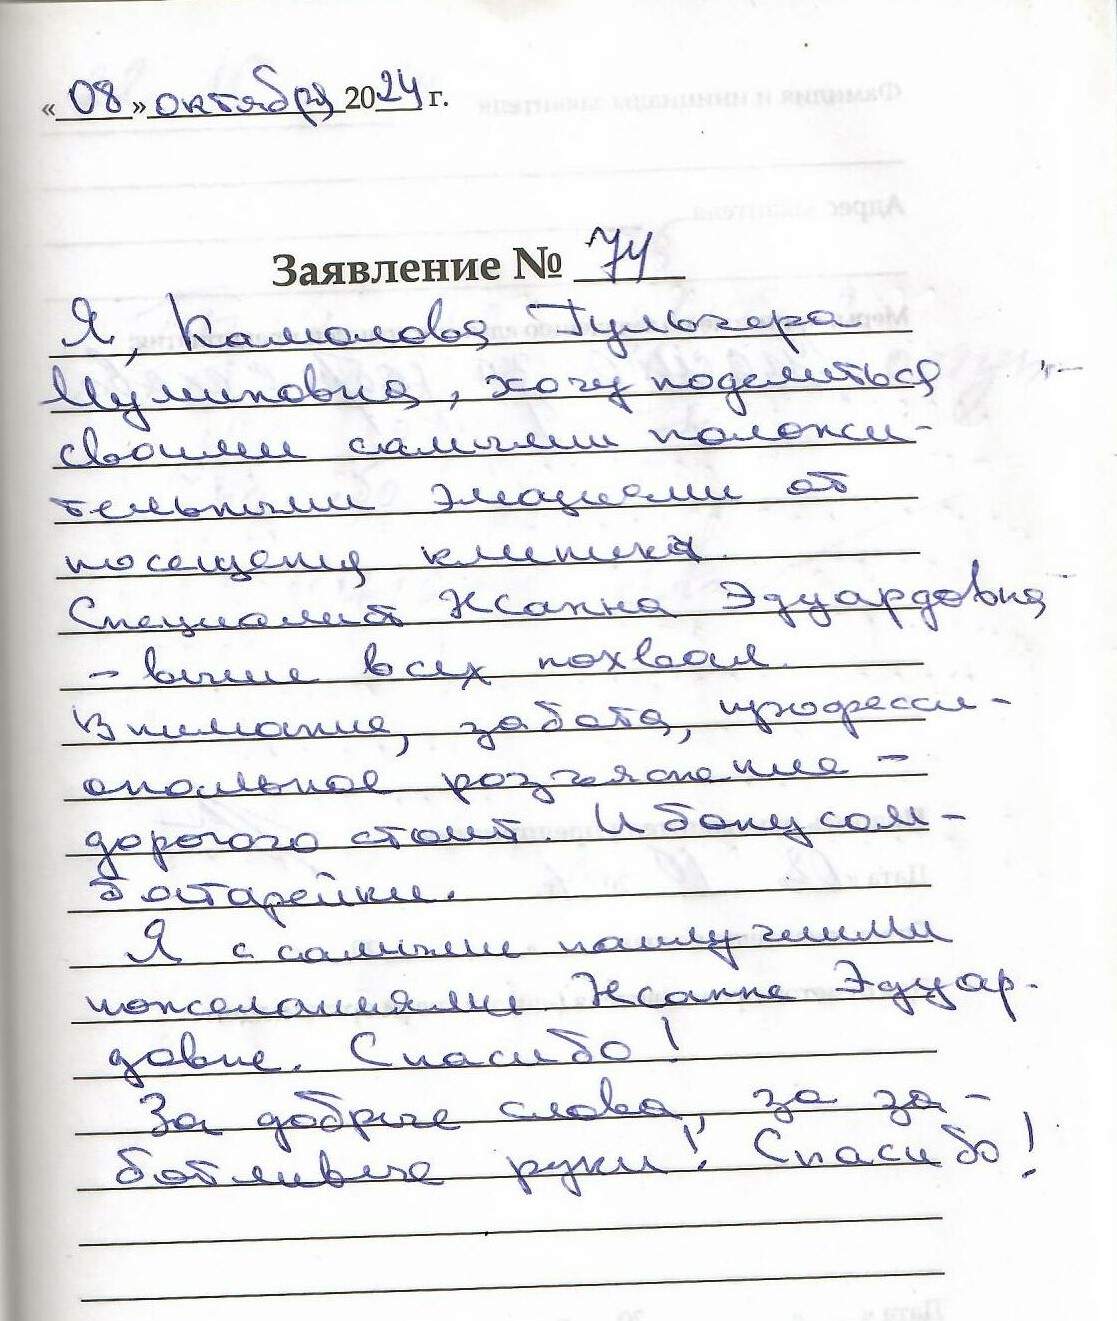 «08» октября 2024 г.
Заявление № 74
Я, Камалова Гульчера
Мулиповна, хочу поделиться
своими самыми положи-
тельными эмоциями от
посещения клиники.
Специалист Жсанна Эдуардовна
- выше всех похвал.
Внимание, забота, професси-
ональное разъяснение -
дорогого стоит. И бонусом -
батарейки.
Я с самыми наилучшими
пожеланиями Жсанне Эдуар-
довне. Спасибо!
За добрые слова, за за-
ботливые руки! Спасибо!